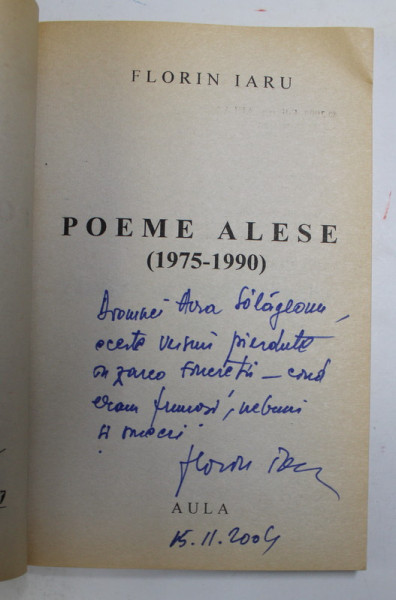 FLORIN IARU
POEME ALESE
(1975-1990)
Doamnei Sălăgeanu,
aceste versuri pierdute
în zarea tinereții – când
eram frumoși, nebuni
și
Florin Iaru
AULA
15.11.2004